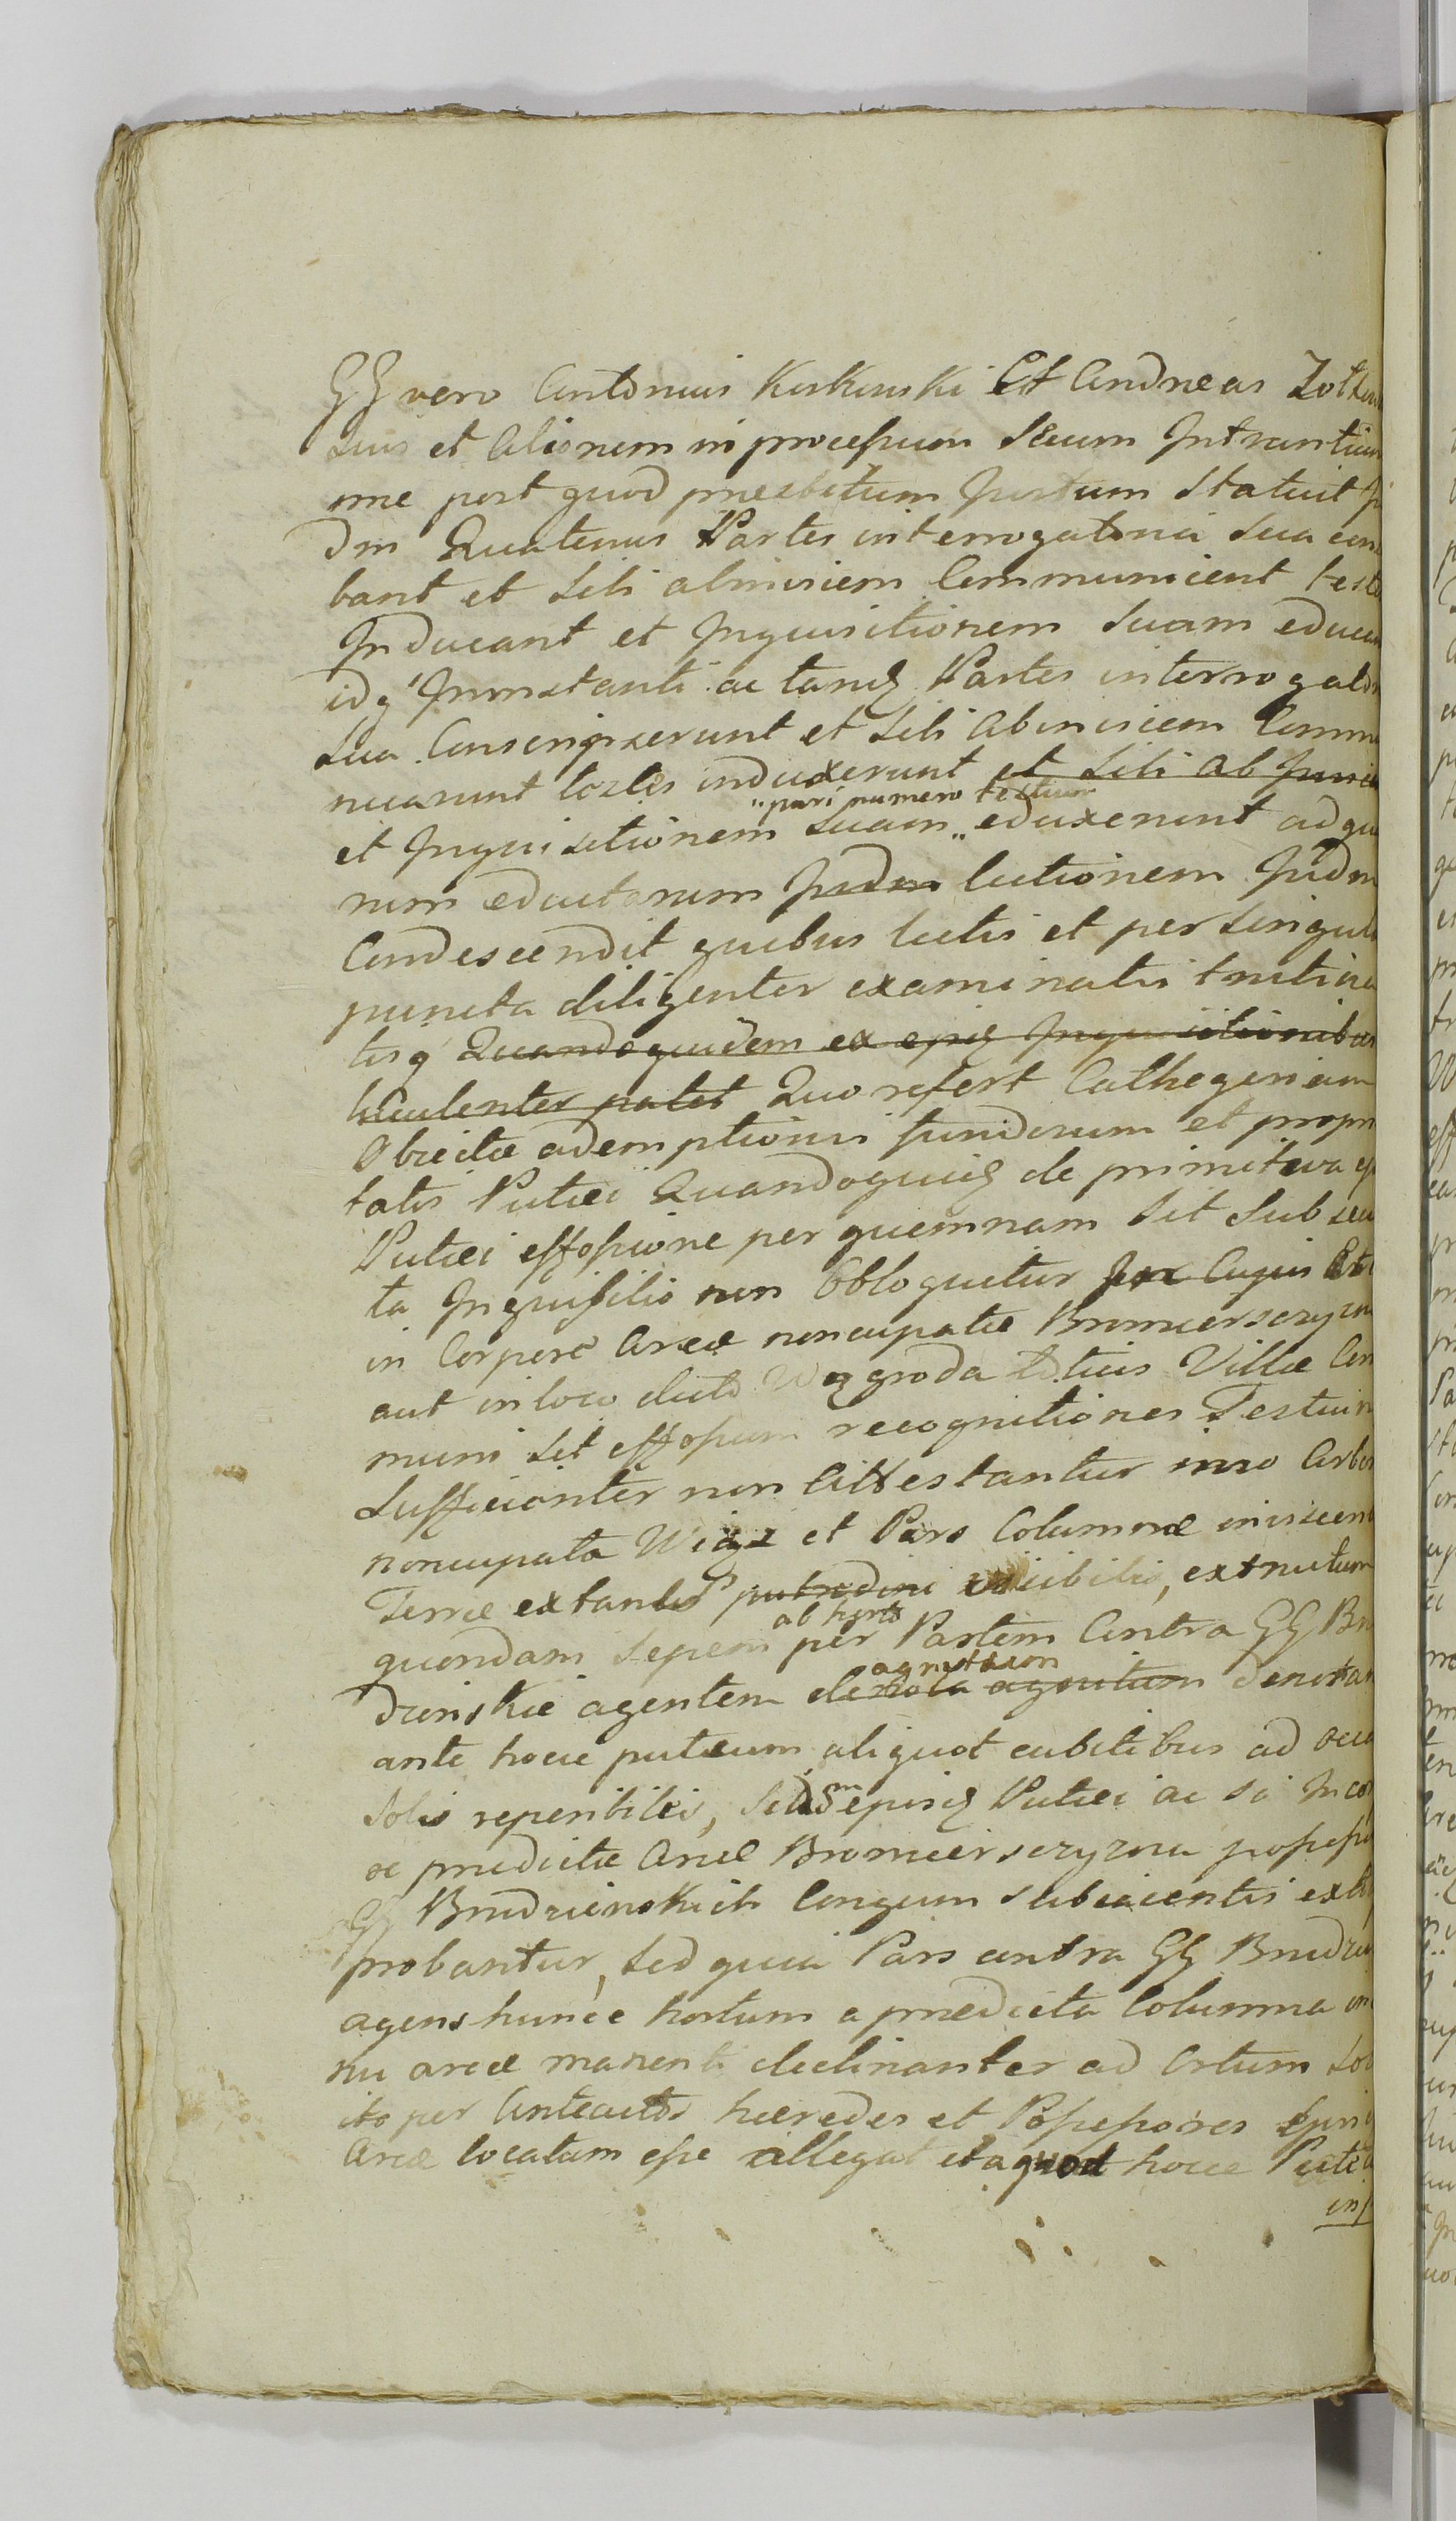 GG vero Antonius Kurkowski Et Andreas Zołkow
suis et Aliorum in processum Secum Intrantium
me post quod praestitum Juratum Statuit
dm Quatenus Partes interrogatoria Sua con
bant et Sibi abinvicem Communicent test
Inducant et Inquisitionem Suam educa
idq Ininstanti ac tandq Partes interrogato
Sua Conscripserunt et Sibi Abinvicem Commu
nicarunt testes induxerunt et Sibi Ab Invic
"pari numero testium
et Inquisitionem Suam " eduxerunt ad qu
rum eductarum Judm lectionem Judm
Condescendit quibus lectis et per singula
puncta diligenter examinatis trutina
tisq Quandoquidem ex ejusq Inquisitionibus
luculenter patet Quo refert Cathegoriam
Obiectae ademptionis fundorum et propri
tatis Putei Quandoquidq de primitiva
Putei effossione per quemnam Sit Subsecu
ta Inquisitio non Obloquitur
in Corpore Areae noncupatae Bromierszczyzna
aut in loco dicto Wygroda totius Villae Com
muni Sit effossum recognitiones Testium
Sufficienter non Attestantur imo Arbor
noncupata Wiąz et Pars Columnae inviscent
Terrae extantis putredini visibilis, extructum
ab horto
quondam Sepem per Partem Contra GG Bru
agnitum
dzinskie agentem agnitum denotan
ante hocce puteum aliquot cubitibus ad occa
Solis reperibilis, Situm ejusq Putei ac Si In co
e praedictae Areae Bromierszczyzna possess
GG Brudzienskich longum Subiacentis exti
probantur, Sed quia Pars contra GG Brudzi
agens huncce hortum a praedicta Columna in
nu areae manenti declinanter ad Ortum Sol
ito per Anteactos haeredes et Possessores
Areae locatam esse allegat itaquod hocce Pute
in